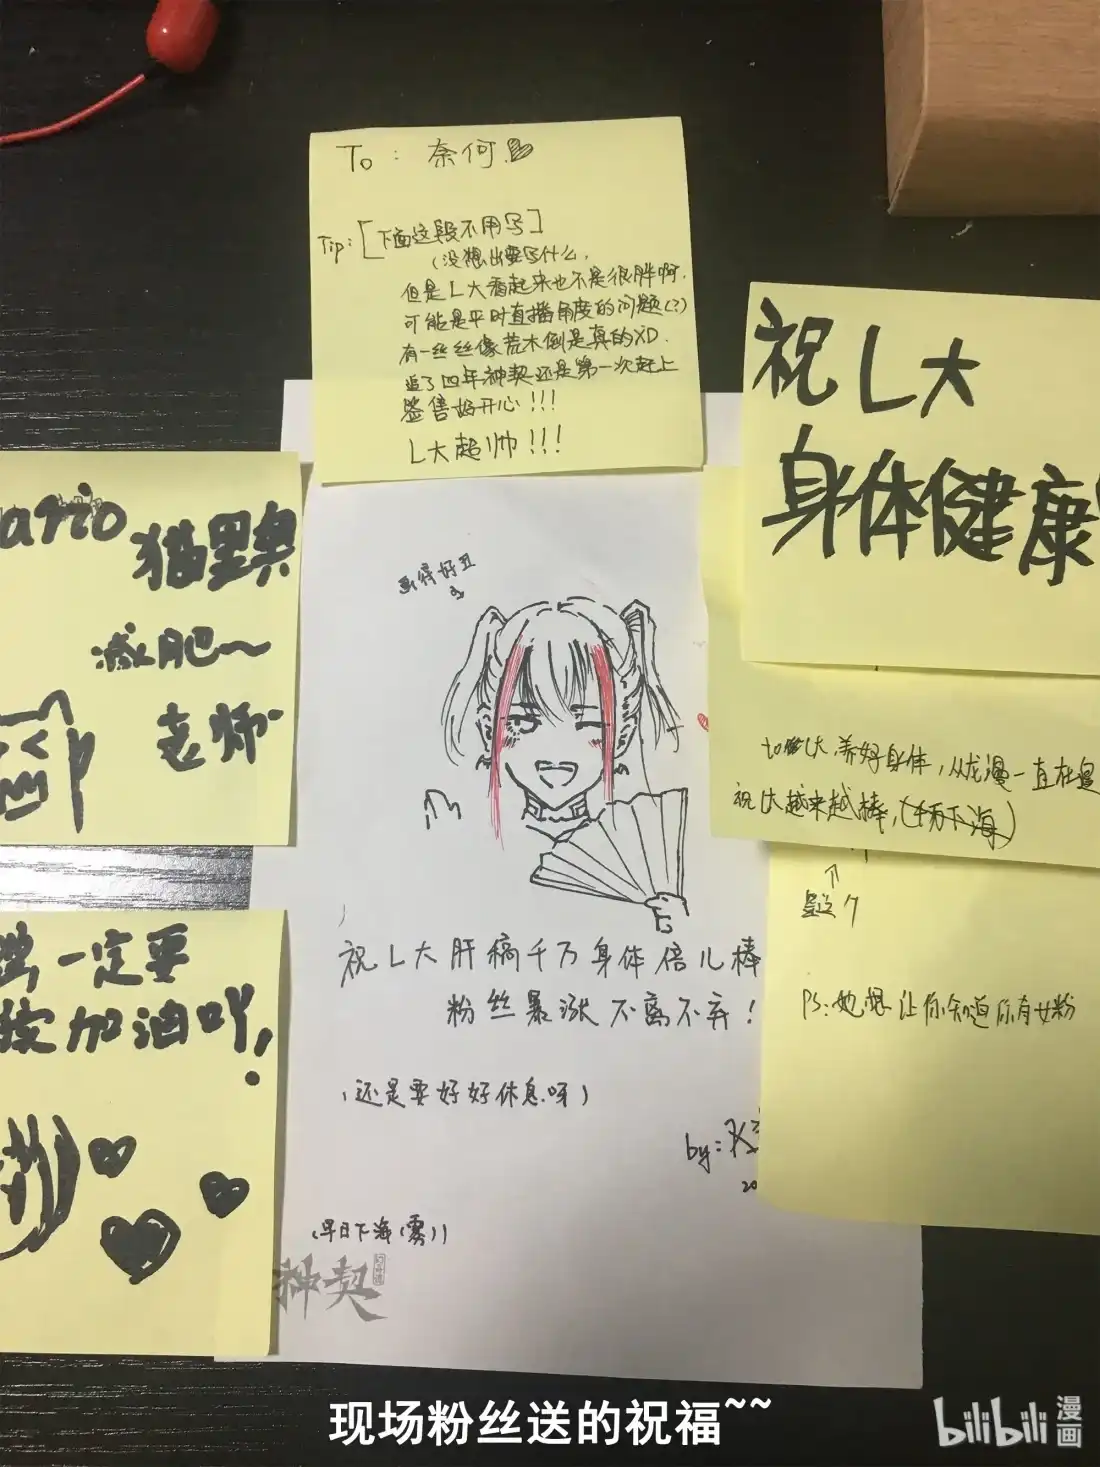 To：奈何
Tip：[下面这段不用写]
（没想出要写什么，
但是L大看起来也不是很胖啊，
可能是平时直播角度的问题(?)
有一丝丝像荒木倒是真的XD.
追了四年神契还是第一次赶上
签售好开心！！！
L大超帅！！！
祝L大
身体健康
ario 猫墨奥
减肥～
老师
画得好丑
L大养好身体，从龙漫一直在追
祝L大越来越棒，(千万下海)
是这个
PS：她想让你知道你有女粉
一定要
加油吖！
祝L大肝稿千万身体倍儿棒
粉丝暴涨不离不弃！
（还是要好好休息呀）
by：
20
（早日下海（雾））
神契
幻奇谭
现场粉丝送的祝福~~
bilibili
漫画